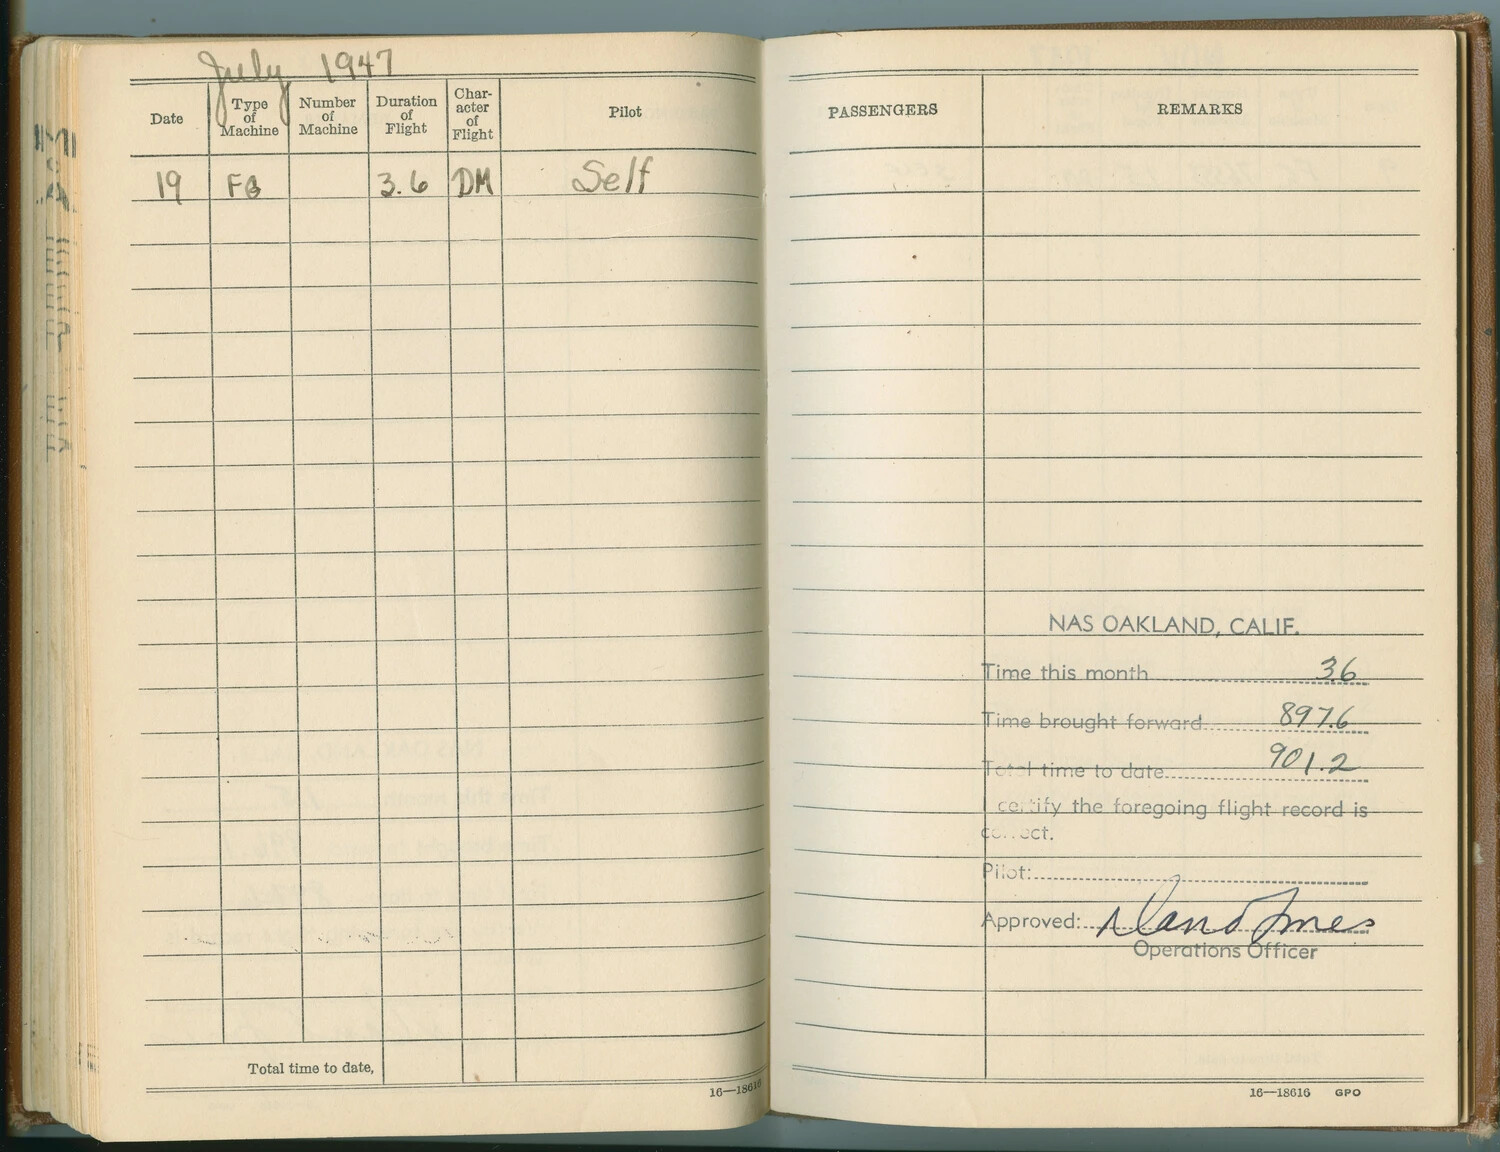 July 1947
Date Type of Machine Number of Machine Duration of Flight Character of Flight Pilot
19 FG 3.6 DM Self
Total time to date,
16—18616
PASSENGERS REMARKS
NAS OAKLAND, CALIF.
Time this month 3.6
Time brought forward 897.6
Total time to date 901.2
I certify the foregoing flight record is
correct.
Pilot:
Approved:
Operations Officer
16—18616 GPO